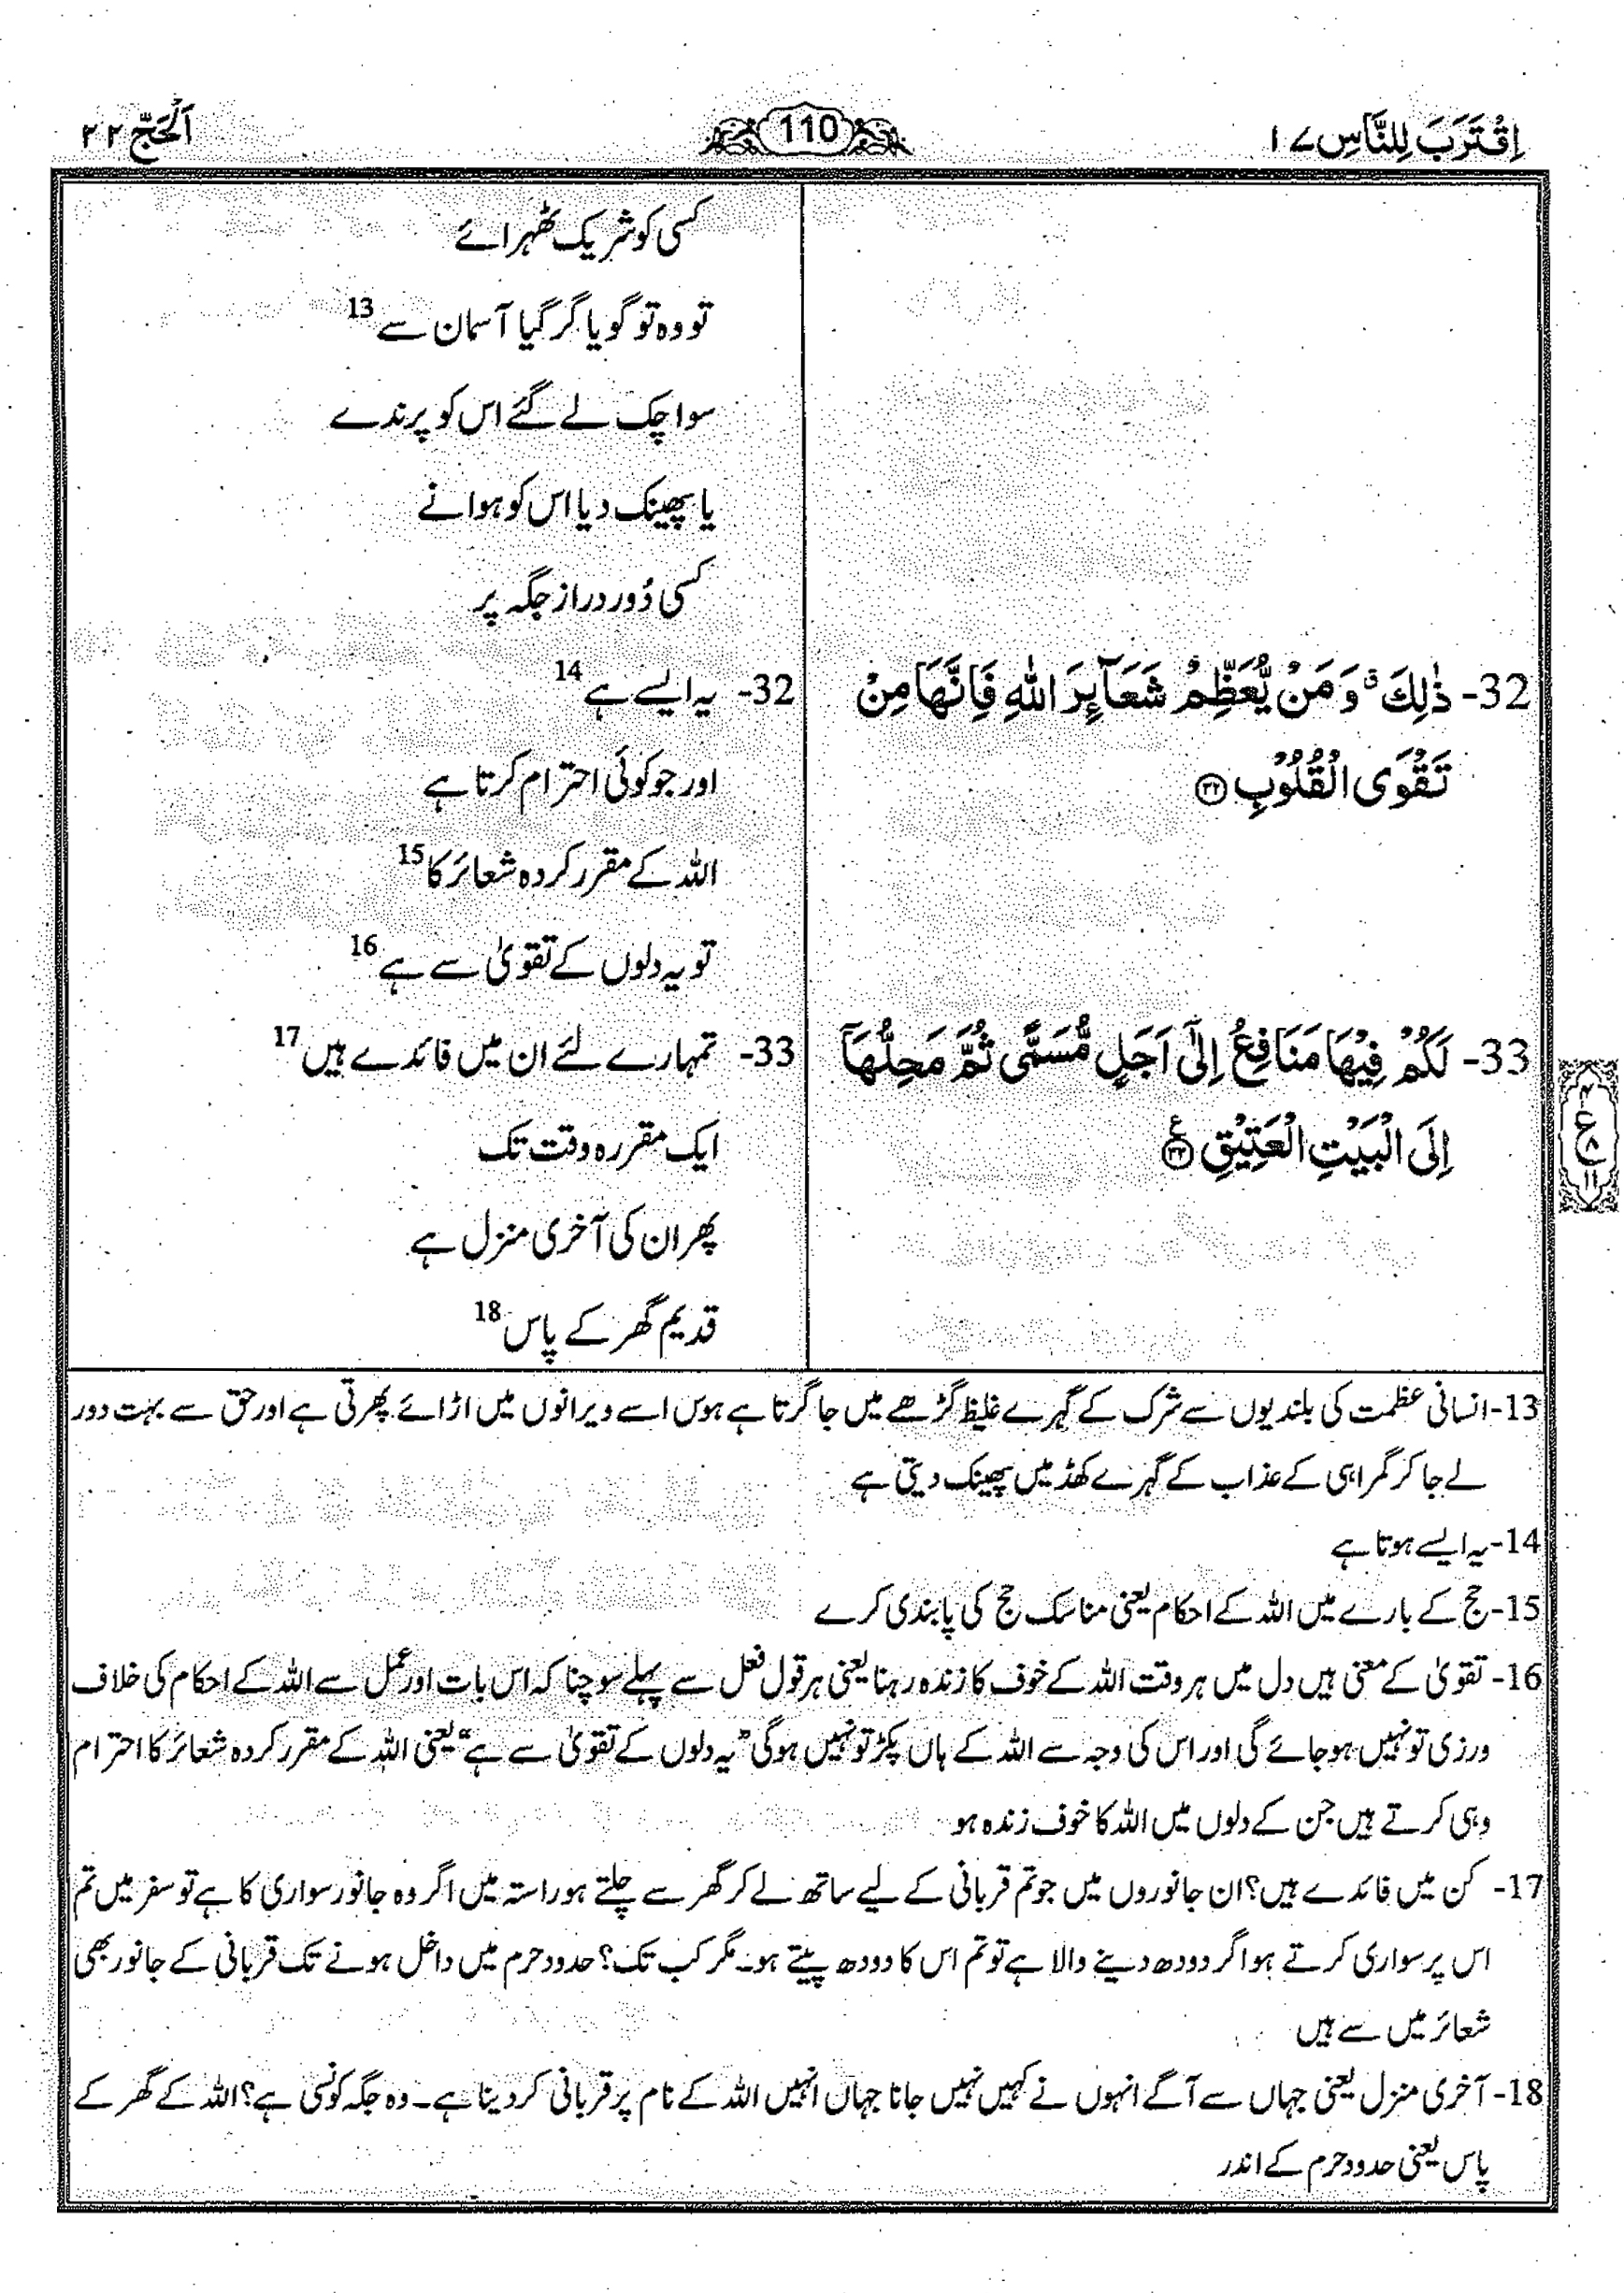 اِقْتَرَبَ لِلنَّاسِ ۱۷
110
اَلْحَجّ ۲۲
کسی کو شریک ٹھہرائے
تو وہ تو گویا گر گیا آسمان سے 13
سو اچک لے گئے اس کو پرندے
یا پھینک دیا اس کو ہوا نے
کسی دُور دراز جگہ پر
32- ذٰلِكَ ۗ وَ مَنْ يُّعَظِّمْ شَعَآىِٕرَ اللّٰهِ فَاِنَّهَا مِنْ
تَقْوَى الْقُلُوْبِ ۝۳۲
32- یہ ایسے ہے 14
اور جو کوئی احترام کرتا ہے
اللہ کے مقرر کردہ شعائر کا 15
تو یہ دلوں کے تقویٰ سے ہے 16
33- لَكُمْ فِيْهَا مَنَافِعُ اِلٰٓى اَجَلٍ مُّسَمًّى ثُمَّ مَحِلُّهَاۤ
اِلَى الْبَيْتِ الْعَتِيْقِ ۝۳۳ ع
33- تمہارے لئے ان میں فائدے ہیں 17
ایک مقررہ وقت تک
پھر ان کی آخری منزل ہے
قدیم گھر کے پاس 18
ع
۱۱
13- انسانی عظمت کی بلندیوں سے شرک کے گہرے غلیظ گڑھے میں جا گرتا ہے ہوس اسے ویرانوں میں اڑائے پھرتی ہے اور حق سے بہت دور
لے جا کر گمراہی کے عذاب کے گہرے کھڈ میں پھینک دیتی ہے
14- یہ ایسے ہوتا ہے
15- حج کے بارے میں اللہ کے احکام یعنی مناسک حج کی پابندی کرے
16- تقویٰ کے معنی ہیں دل میں ہر وقت اللہ کے خوف کا زندہ رہنا یعنی ہر قول فعل سے پہلے سوچنا کہ اس بات اور عمل سے اللہ کے احکام کی خلاف
ورزی تو نہیں ہو جائے گی اور اس کی وجہ سے اللہ کے ہاں پکڑ تو نہیں ہوگی ”یہ دلوں کے تقویٰ سے ہے“ یعنی اللہ کے مقرر کردہ شعائر کا احترام
وہی کرتے ہیں جن کے دلوں میں اللہ کا خوف زندہ ہو
17- کن میں فائدے ہیں؟ ان جانوروں میں جو تم قربانی کے لیے ساتھ لے کر گھر سے چلتے ہو راستہ میں اگر وہ جانور سواری کا ہے تو سفر میں تم
اس پر سواری کرتے ہو اگر دودھ دینے والا ہے تو تم اس کا دودھ پیتے ہو۔ مگر کب تک؟ حدود حرم میں داخل ہونے تک قربانی کے جانور بھی
شعائر میں سے ہیں
18- آخری منزل یعنی جہاں سے آگے انہوں نے کہیں نہیں جانا جہاں انہیں اللہ کے نام پر قربانی کر دینا ہے۔ وہ جگہ کونسی ہے؟ اللہ کے گھر کے
پاس یعنی حدود حرم کے اندر